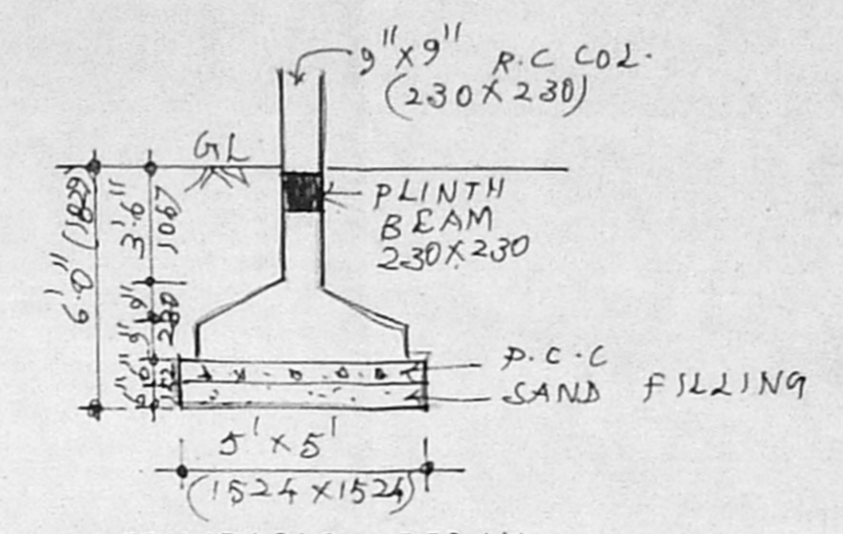 9"x9" R.C COL.
(230 X 230)
GL
PLINTH
BEAM
230X230
6'.0" (1829)
3'.6"
1067
9"
9"
6"
6"
P.C.C
SAND FILLING
5' x 5'
(1524 X1524)